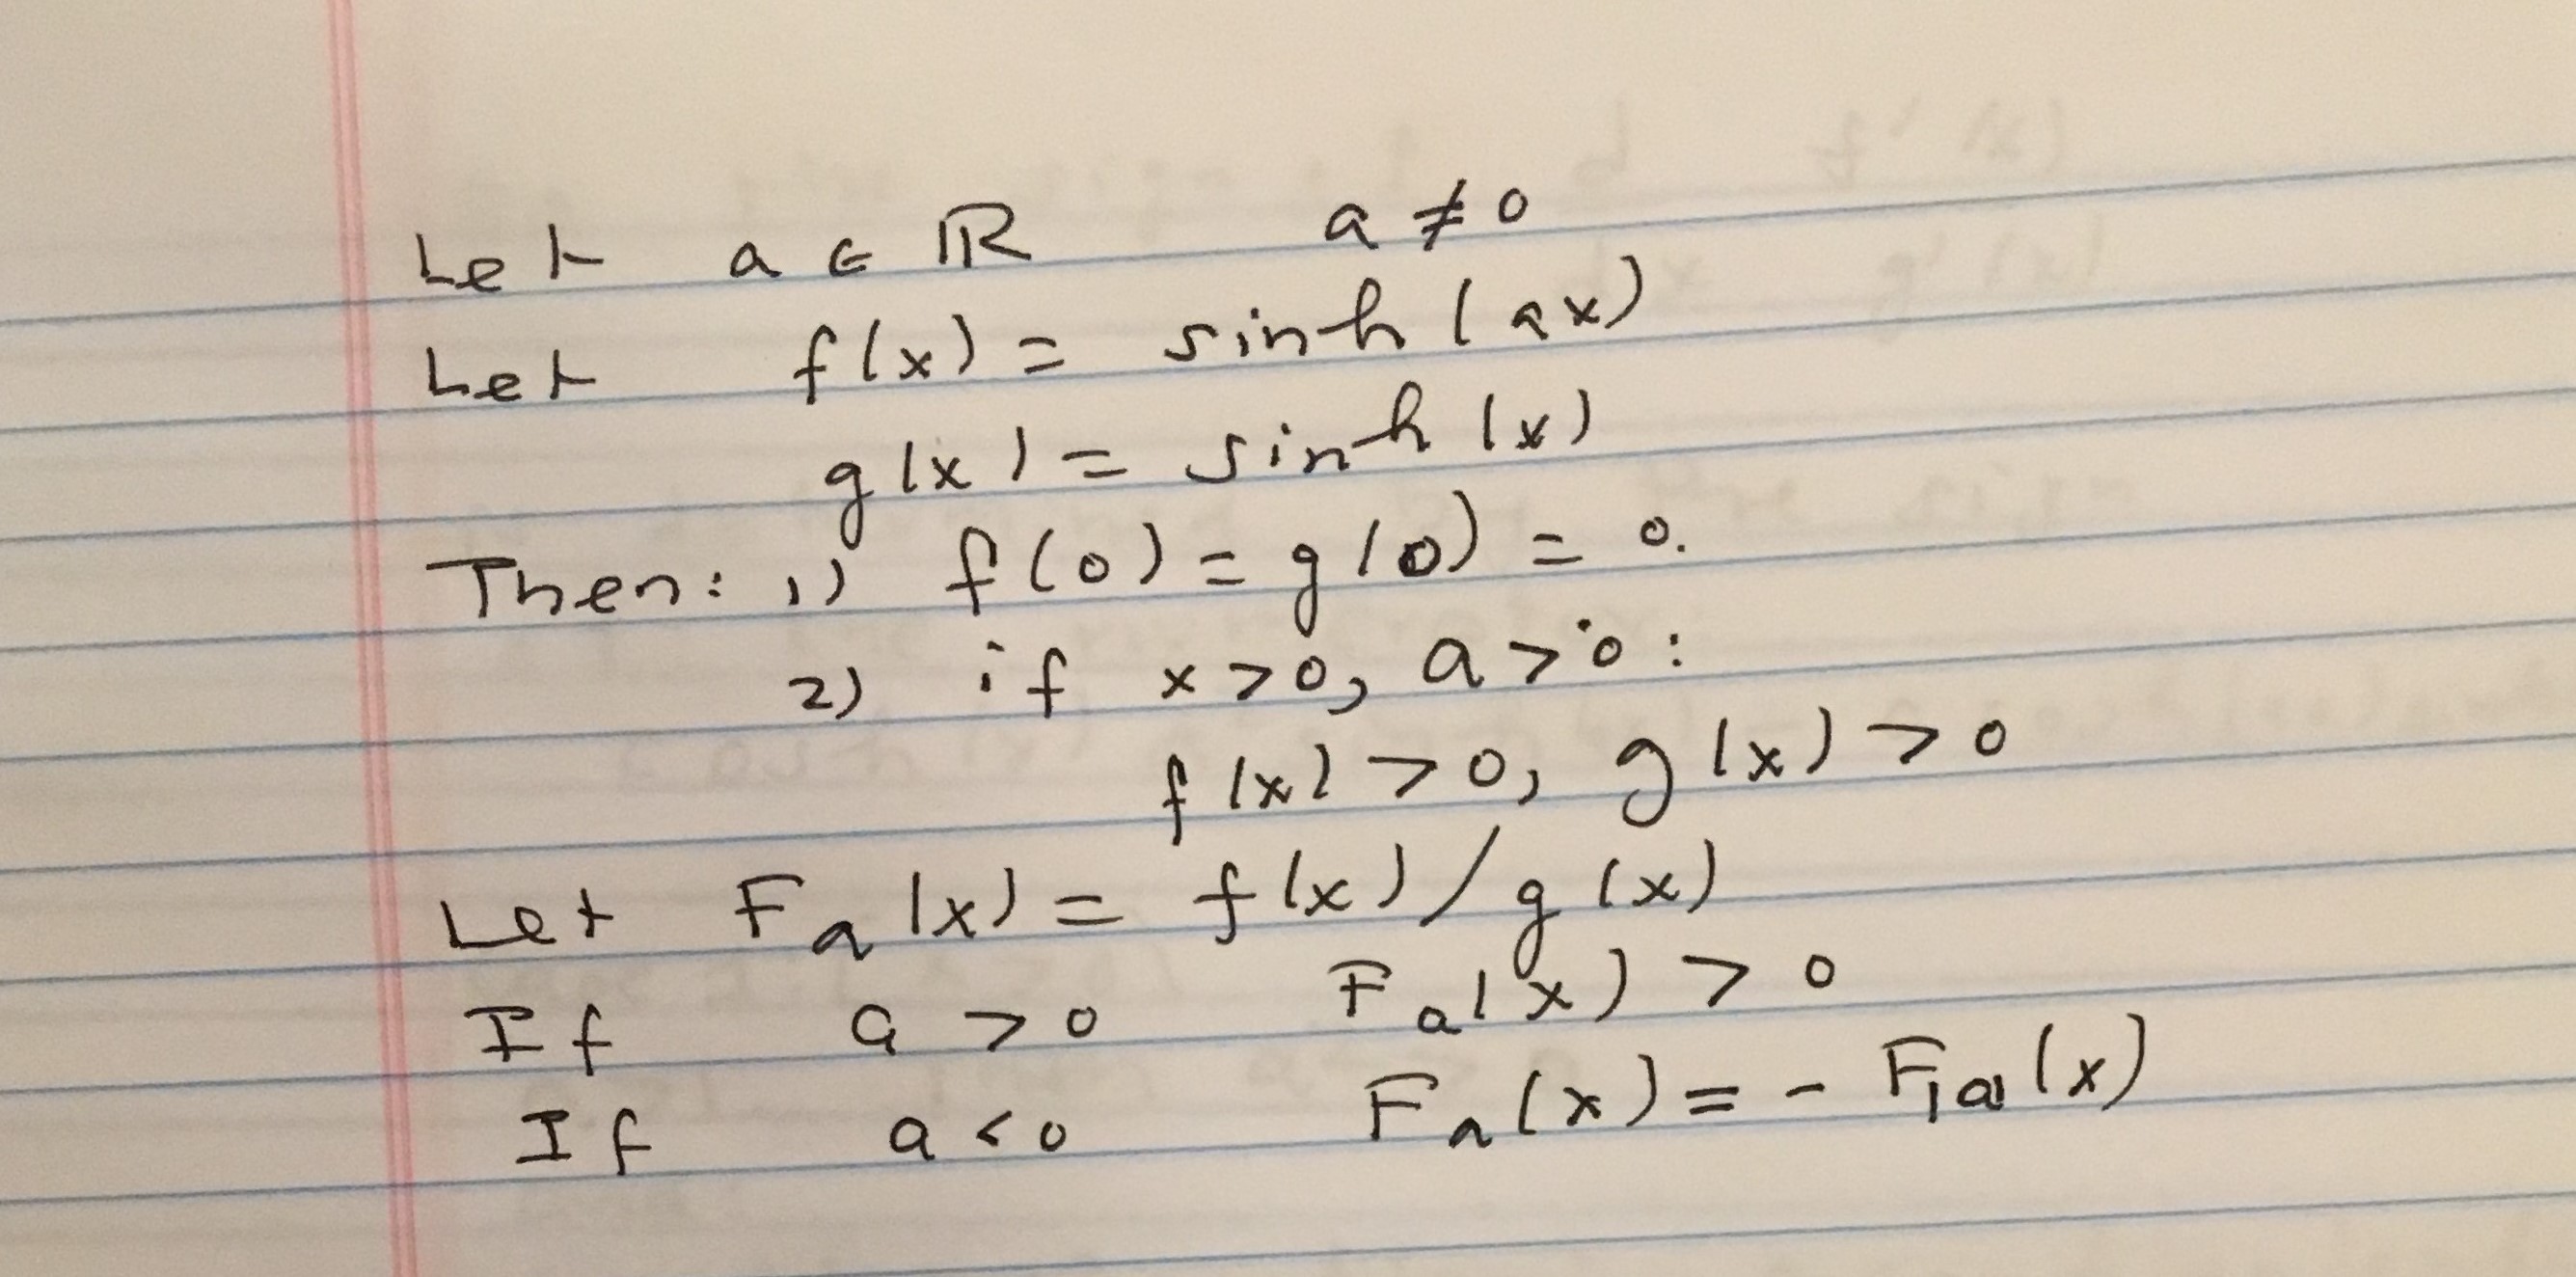 Let a ∈ ℝ a ≠ 0
Let f(x) = sinh(ax)
g(x) = sinh(x)
Then: 1) f(0) = g(0) = 0.
2) if x > 0, a > 0:
f(x) > 0, g(x) > 0
Let F_a(x) = f(x)/g(x)
If a > 0 F_a(x) > 0
If a < 0 F_a(x) = - F_|a|(x)